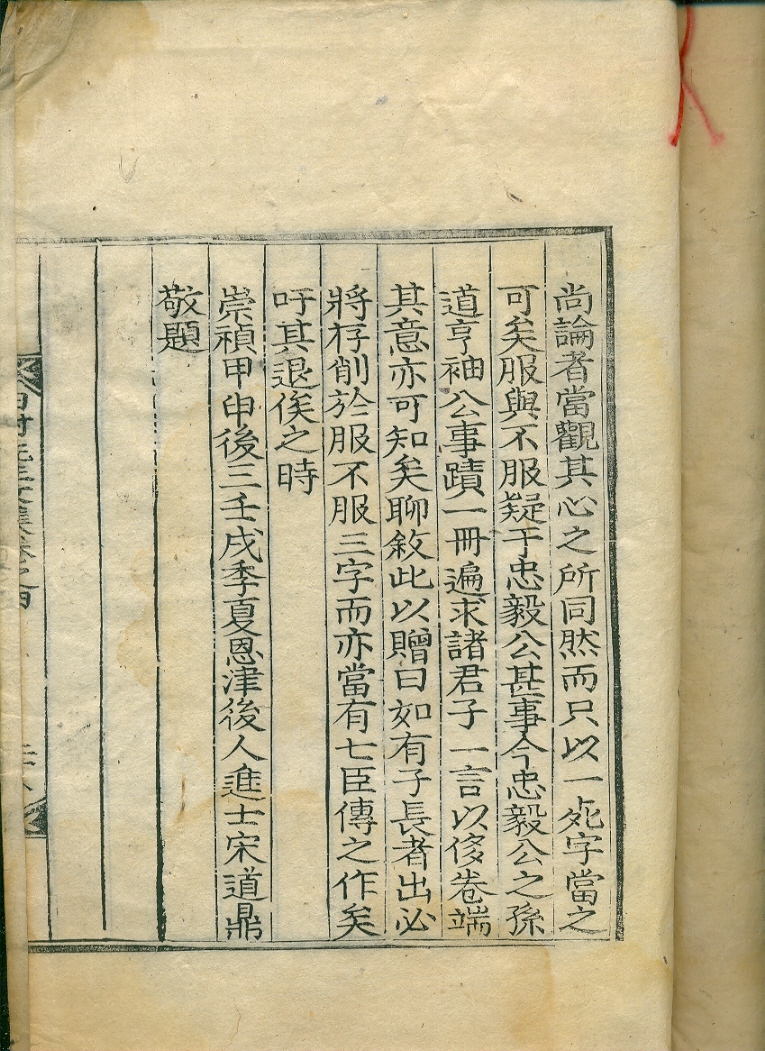 尚論者當觀其心之所同然而只以一死字當之
可矣服與不服疑于忠毅公甚事今忠毅公之孫
道亨袖公事蹟一冊遍求諸君子一言以侈卷端
其意亦可知矣聊敘此以贈曰如有子長者出必
將存削於服不服三字而亦當有七臣傳之作矣
吁其退俟之時
崇禎甲申後三壬戌季夏恩津後人進士宋道鼎
敬題